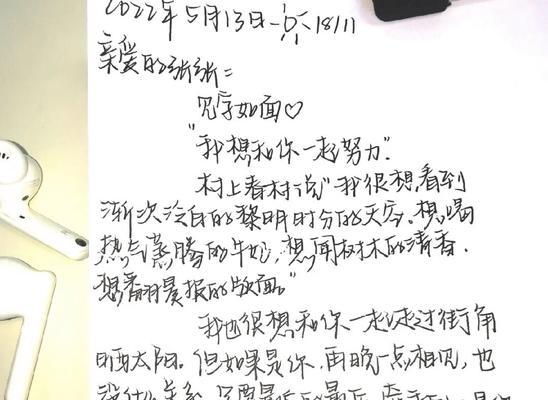 2022年5月13日 18/11
亲爱的张张:
见字如面♡
"我想和你一起努力".
村上春树说"我很想,看到
渐次泛白的黎明时分的天空.想喝
热气蒸腾的牛奶,想闻树木的清香.
想翻晨报的版面。"
我也很想和你一起走过街角
晒太阳.但如果是你,再晚一点相见,也
没什么关系,只要是